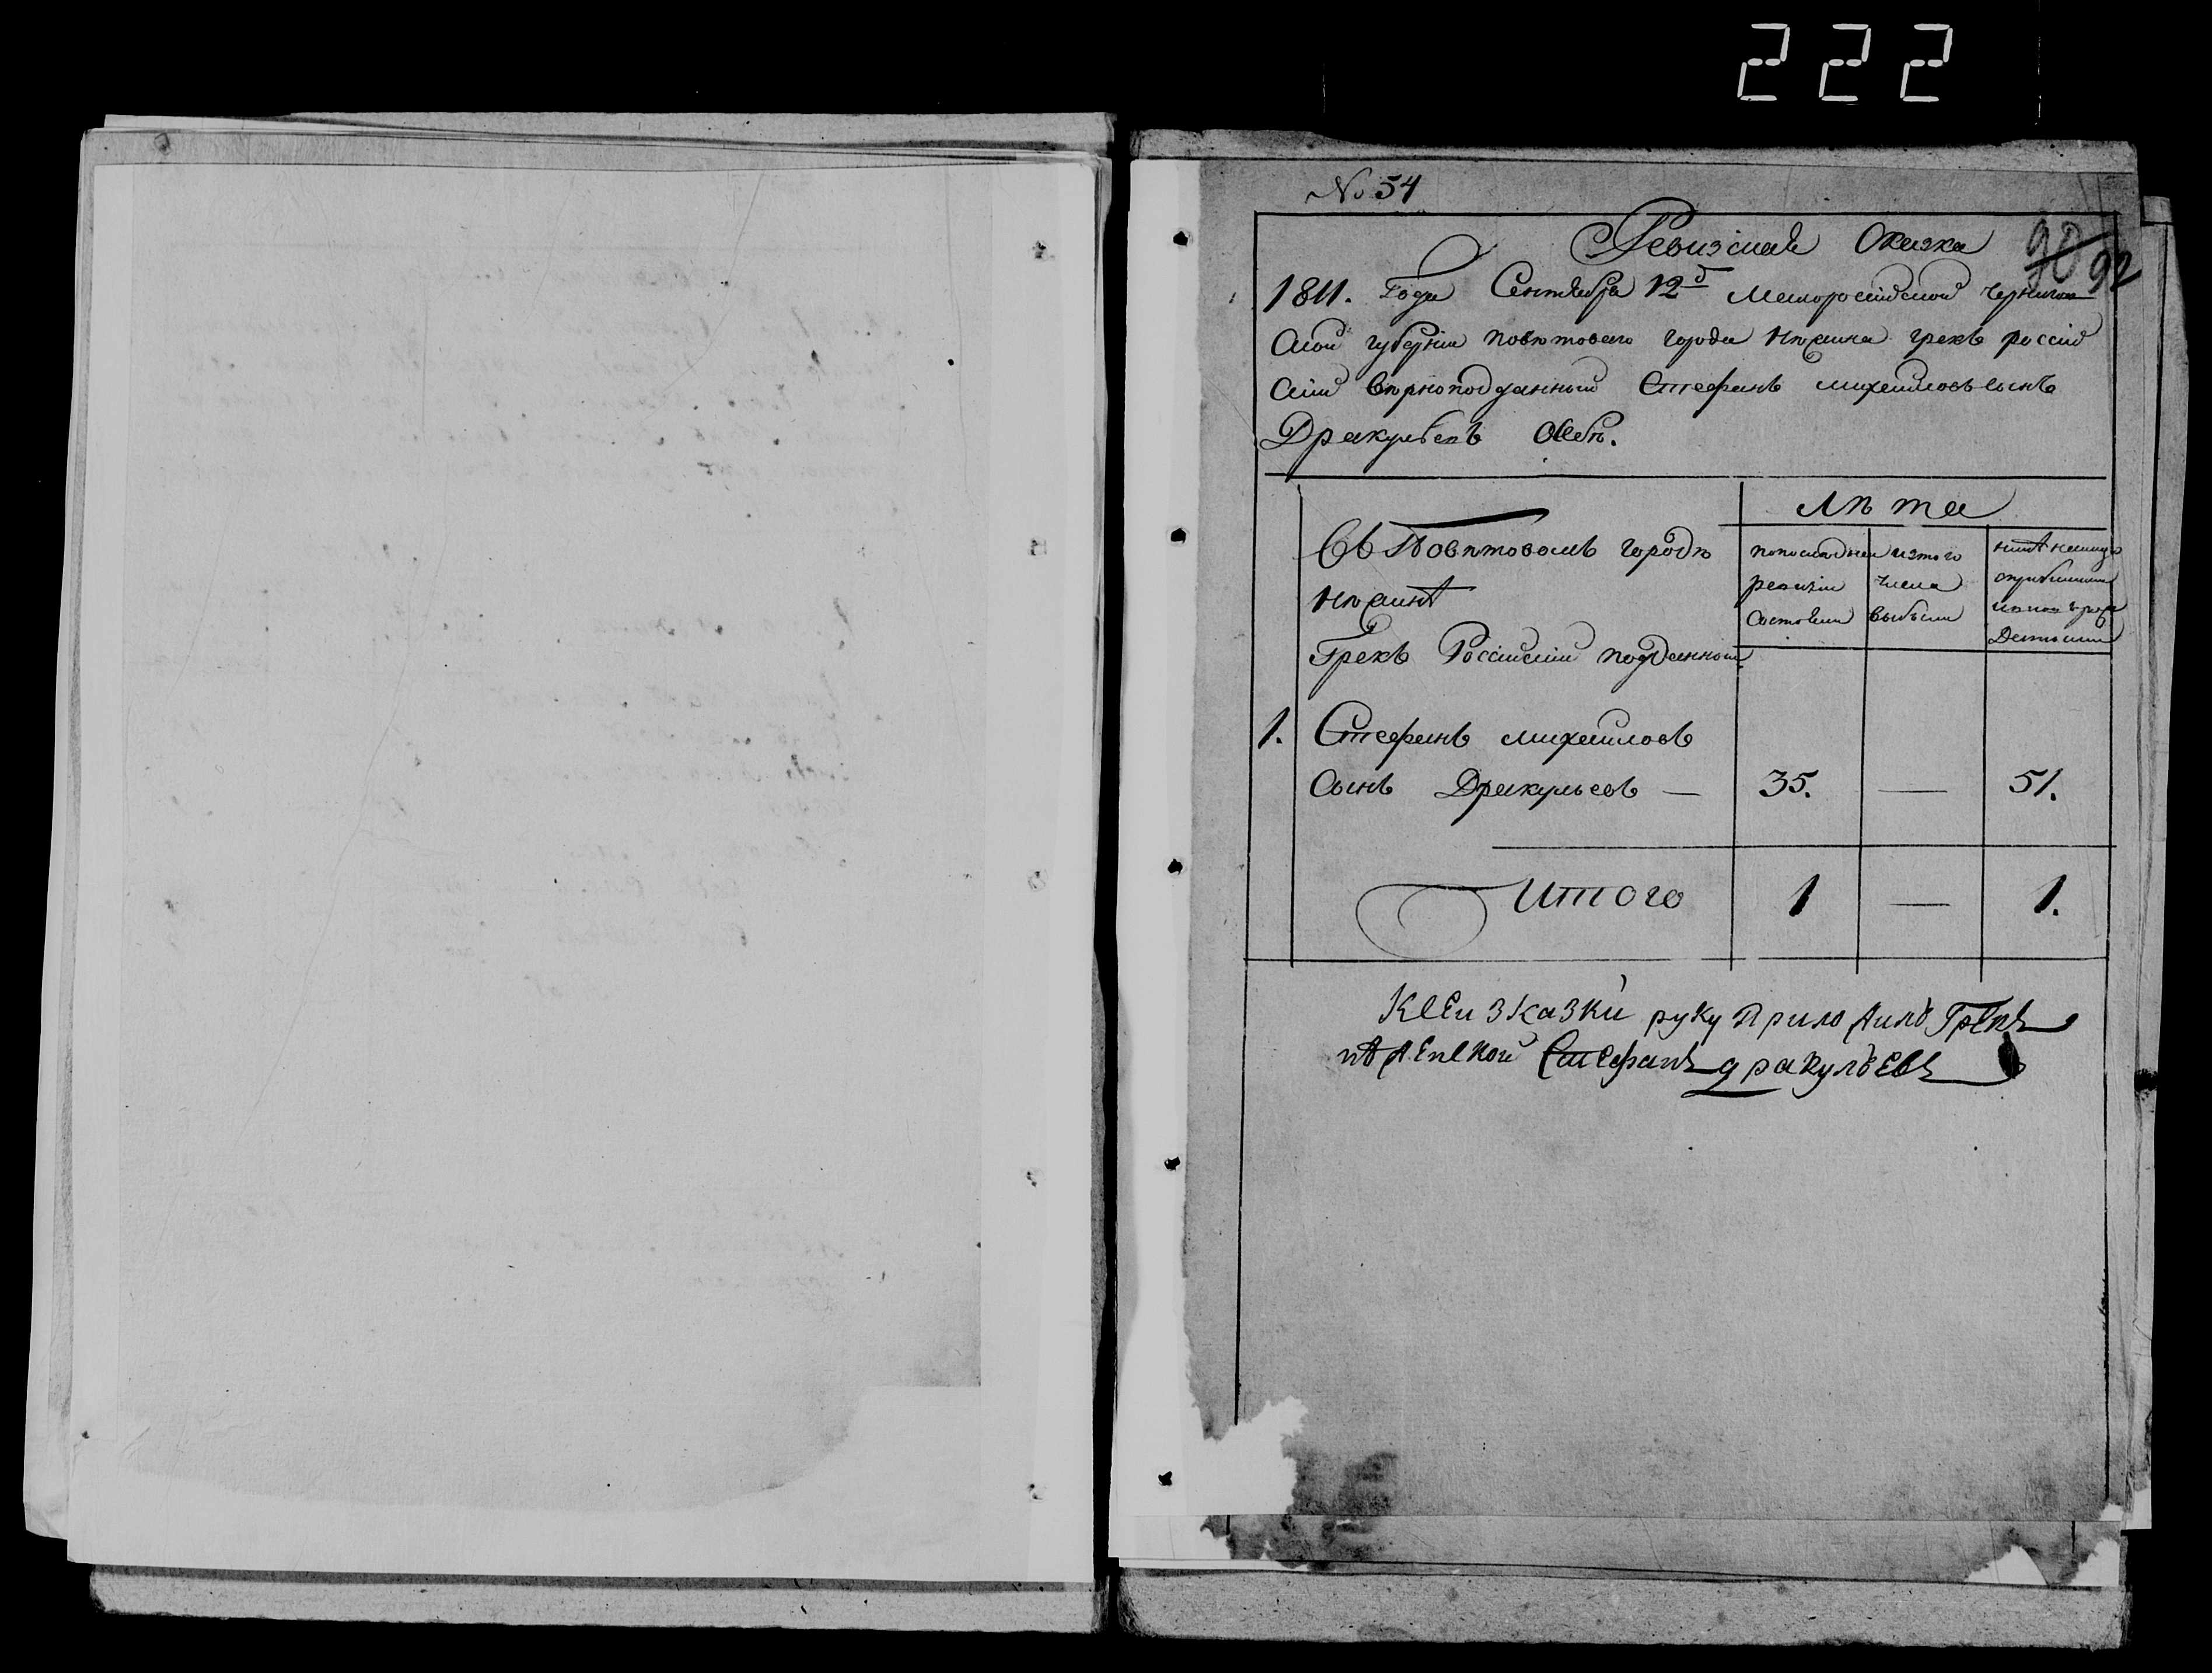 222
№ 54
Ревизская Сказка
90 92
1811. Года Сентября 12д Малоросійской Чернигов
ской губерніи повѣтоваго города Нѣжина грекъ россій
скій вѣрноподданный Стефанъ михайловъ сынъ
Дракульевъ
Въ Повѣтовомъ городѣ
Нѣжинѣ
Грекъ Россійскій подданной
Лѣта
попоследней
ревизіи
состояли
изтого
числа
выбыли
1. Стефанъ михайловъ
Сынъ Дракульевъ — 35. — 51.
Итого 1 — 1.
Ксеи зказки руку Приложилъ Грекъ
нѣженской Стефанъ дракулъевъ